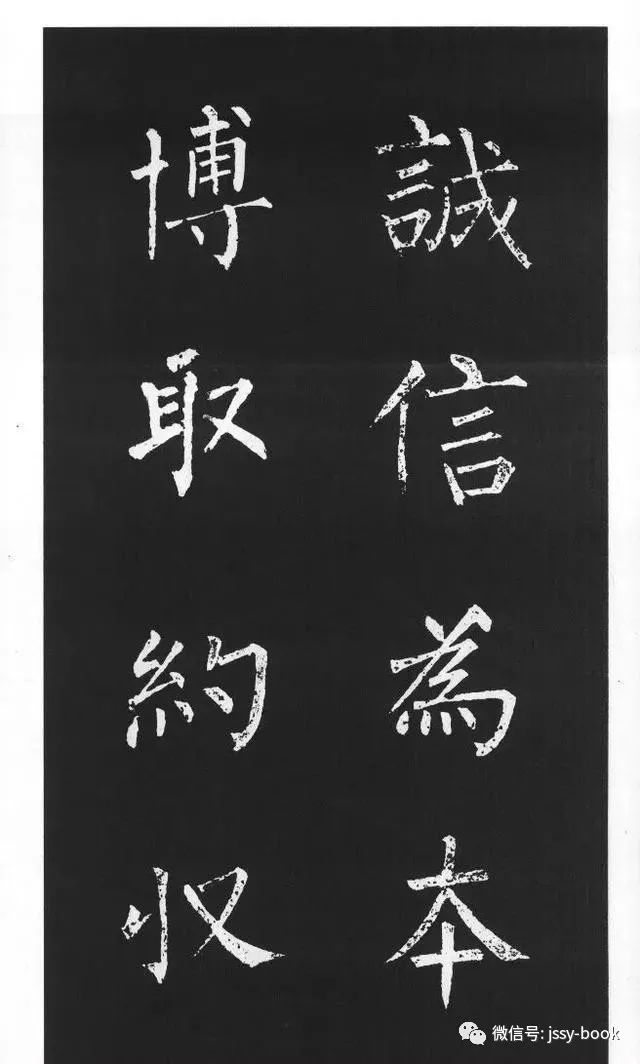 誠信為本
博取約収
微信号: jssy-book